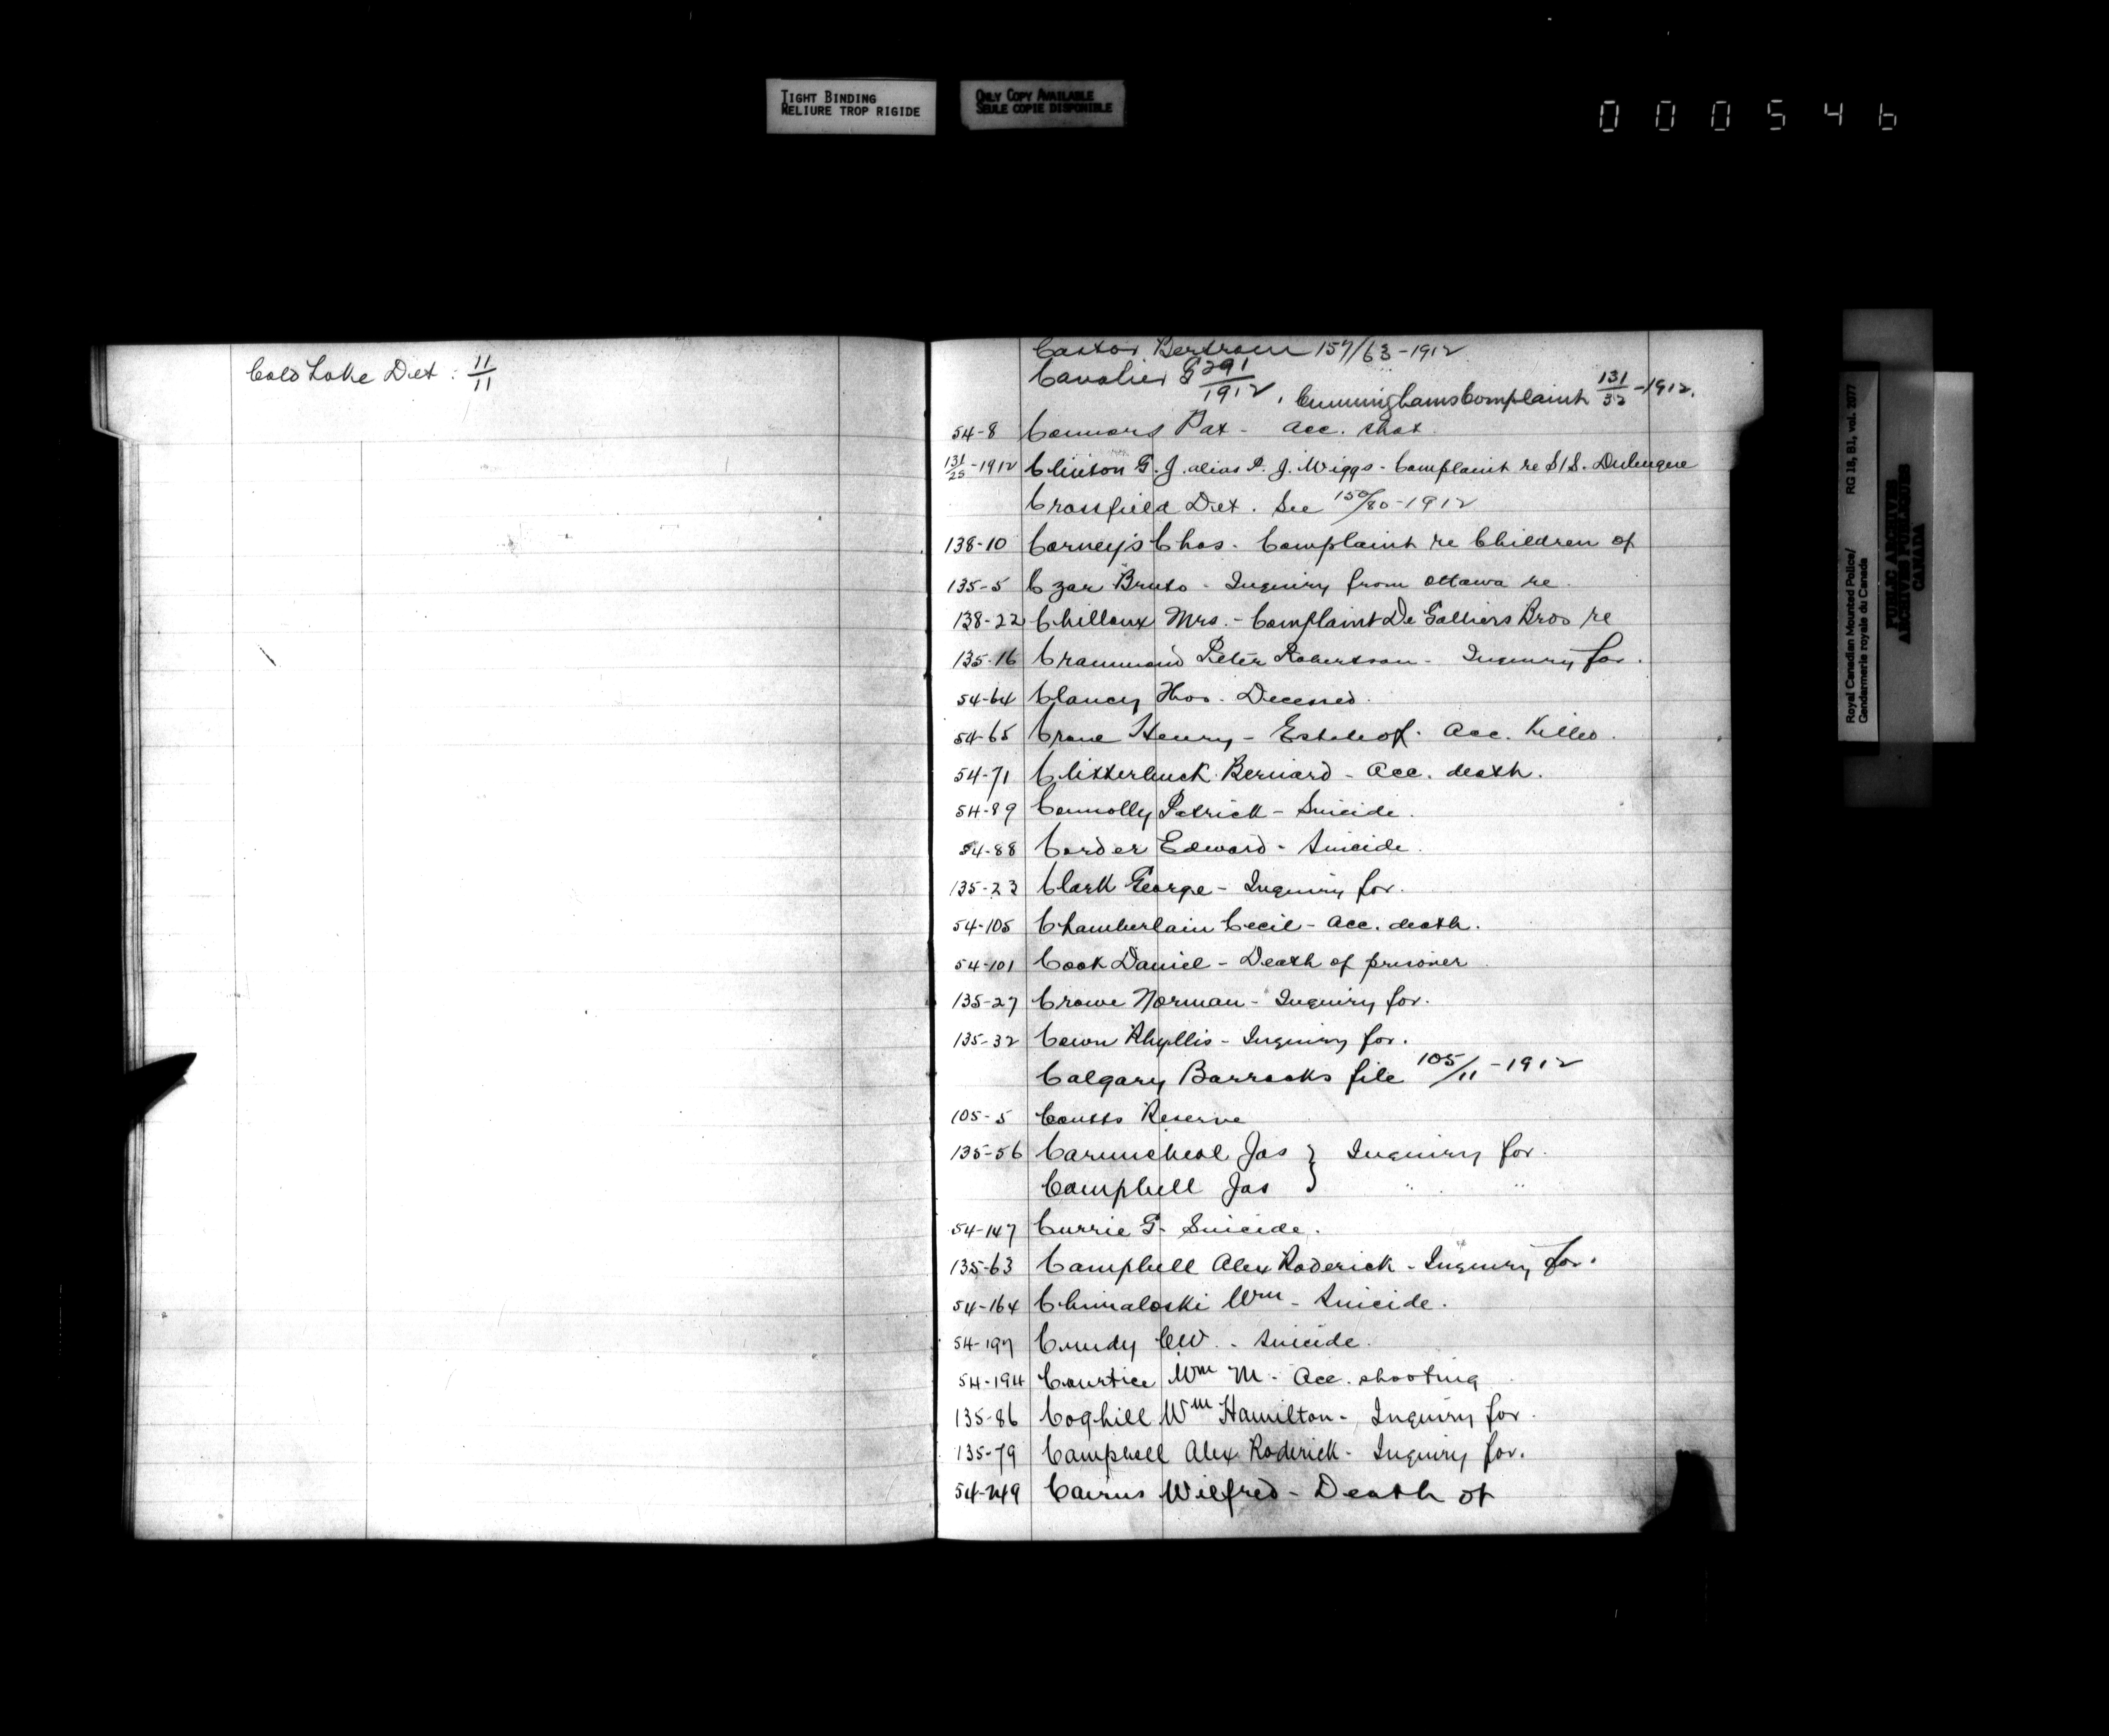 TIGHT BINDING
RELIURE TROP RIGIDE
ONLY COPY AVAILABLE
SEULE COPIE DISPONIBLE
000546
Royal Canadian Mounted Police/ RG 18, B1, vol. 2077
Gendarmerie royale du Canada
PUBLIC ARCHIVES
ARCHIVES PUBLIQUES
CANADA
Cold Lake Det : 11/11
Castor Bertram 157/63-1912
Cavalier G 291/1912, Cunninghams Complaint 131/32-1912.
54-8 Connors Pat - Acc. shot
131/25-1912 Clinton G. J. alias P. J. Wiggs - Complaint re S/S.
Crossfield Det. See 150/80-1912
138-10 Corney's Chas. Complaint re Children of
135-5 Czar Bruto - Inquiry from Ottawa re
138-22 Chilloux Mrs. - Complaint De Galliers Bros re
135-16 Crammond Peter Robertson - Inquiry for.
54-64 Clancy Thos. Deceased.
54-65 Crone Henry - Estate of. Acc. Killed.
54-71 Clitterbuck Bernard - Acc. death.
54-89 Connolly Patrick - Suicide.
54-88 Corder Edward - Suicide.
135-23 Clark George - Inquiry for.
54-105 Chamberlain Cecil - Acc. death.
54-101 Cook Daniel - Death of prisoner
135-27 Crowe Norman - Inquiry for.
135-32 Cown Phyllis - Inquiry for.
Calgary Barracks file 105/11-1912
105-5 Coutts Reserve
135-56 Carmicheal Jas } Inquiry for.
Campbell Jas } " "
54-147 Currie G. Suicide.
135-63 Campbell Alex Roderick - Inquiry for.
54-164 Chmaloski Wm - Suicide.
54-197 Cundy CW. - Suicide.
54-194 Courtice Wm M - Acc. shooting
135-86 Coghill Wm Hamilton - Inquiry for.
135-79 Campbell Alex Roderick - Inquiry for.
54-249 Cairns Wilfred - Death of